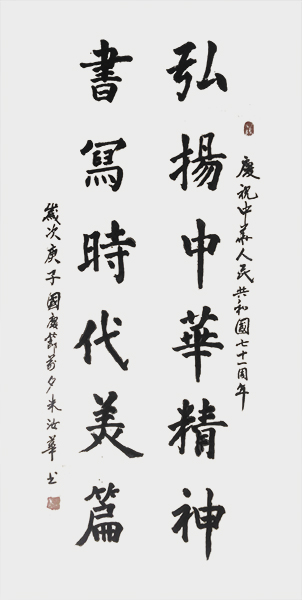 慶祝中華人民共和國七十一周年
弘揚中華精神
書寫時代美篇
歲次庚子國慶節前夕朱汝華書